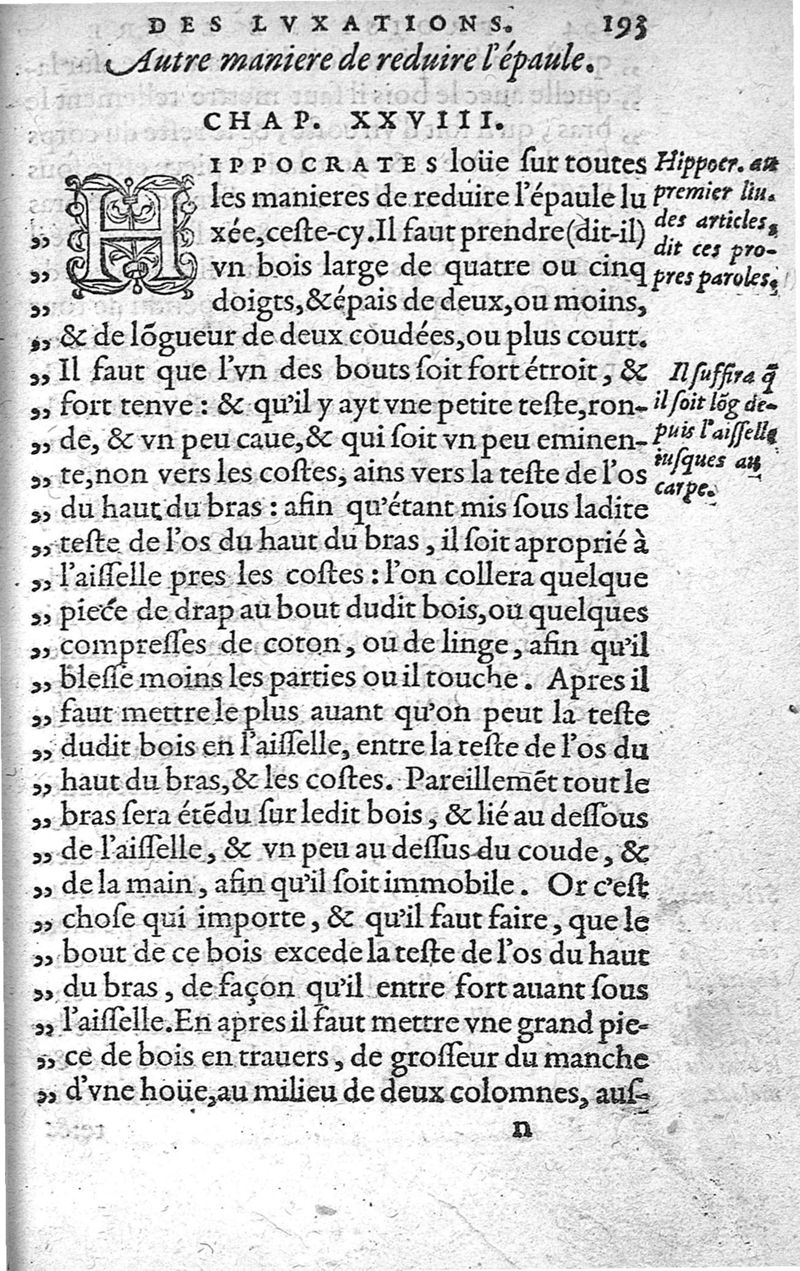 DES LVXATIONS. 193
Autre maniere de reduire l'épaule.
CHAP. XXVIII.
HIPPOCRATES loüe ſur toutes
les manieres de reduire l'épaule lu
xée, ceſte-cy. Il faut prendre (dit-il)
vn bois large de quatre ou cinq
doigts, & épais de deux, ou moins,
„ & de lõgueur de deux coudées, ou plus court.
„ Il faut que l'vn des bouts ſoit fort étroit, &
„ fort tenve : & qu'il y ayt vne petite teſte, ron-
„ de, & vn peu caue, & qui ſoit vn peu eminen-
„ te, non vers les coſtes, ains vers la teſte de l'os
„ du haut du bras : afin qu'étant mis ſous ladite
„ teſte de l'os du haut du bras, il ſoit aproprié à
„ l'aiſſelle pres les coſtes : l'on collera quelque
„ piece de drap au bout dudit bois, ou quelques
„ compreſſes de coton, ou de linge, afin qu'il
„ bleſſe moins les parties ou il touche. Apres il
„ faut mettre le plus auant qu'on peut la teſte
„ dudit bois en l'aiſſelle, entre la teſte de l'os du
„ haut du bras, & les coſtes. Pareillemẽt tout le
„ bras ſera étẽdu ſur ledit bois, & lié au deſſous
„ de l'aiſſelle, & vn peu au deſſus du coude, &
„ de la main, afin qu'il ſoit immobile. Or c'eſt
„ choſe qui importe, & qu'il faut faire, que le
„ bout de ce bois excede la teſte de l'os du haut
„ du bras, de façon qu'il entre fort auant ſous
„ l'aiſſelle. En apres il faut mettre vne grand pie-
„ ce de bois en trauers, de groſſeur du manche
„ d'vne hoüe, au milieu de deux colomnes, auſ-
n
Hippocr. au
premier liu.
des articles,
dit ces pro-
pres paroles.
Il ſuffira q̃
il ſoit lõg de-
puis l'aiſſelle
iuſques au
carpe.